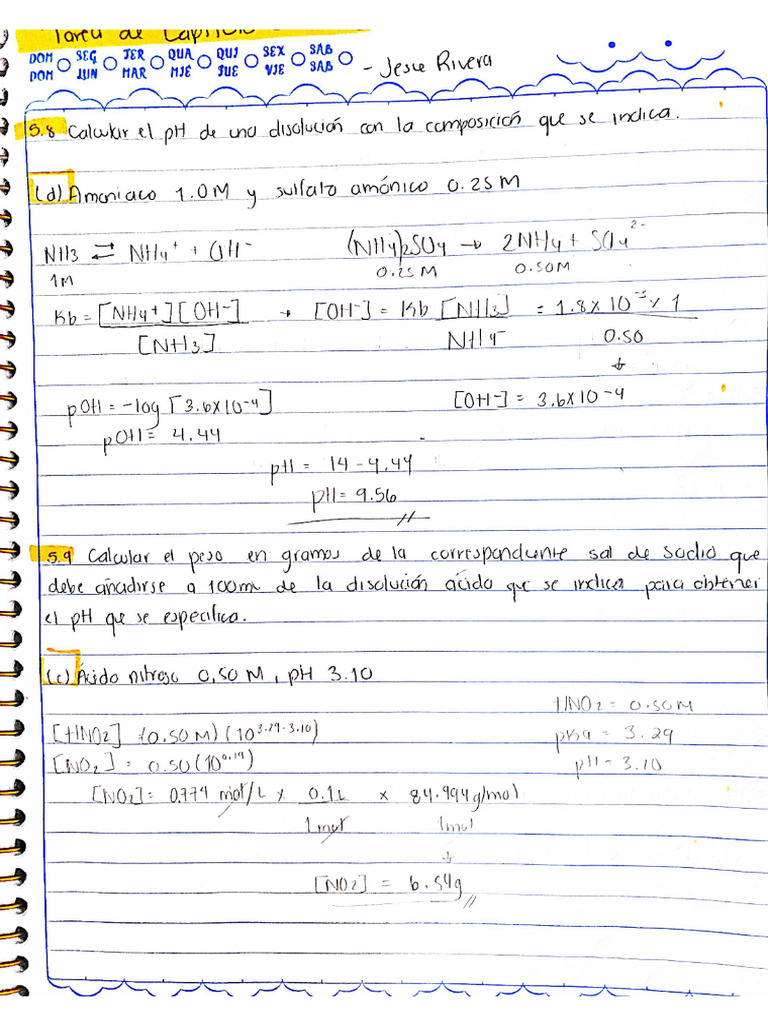 Tarea de Capítulo
DOM SEG TER QUA QUI SEX SAB
DOM LUN MAR MIE JUE VIE SAB
- Jesie Rivera
5.8 Calcular el pH de una disolución con la composición que se indica.
(d) Amoniaco 1.0M y sulfato amónico 0.25M
NH3 ⇌ NH4⁺ + OH⁻ (NH4)2SO4 → 2NH4 + SO4²⁻
1M 0.25M 0.50M
Kb = [NH4⁺][OH⁻] → [OH⁻] = Kb [NH3] = 1.8x10⁻⁵ x 1
[NH3] NH4⁻ 0.50
↓
pOH = -log [3.6x10⁻⁴] [OH⁻] = 3.6x10⁻⁴
pOH = 4.44
pH = 14 - 4.44
pH = 9.56
5.9 Calcular el peso en gramos de la correspondiente sal de sodio que
debe añadirse a 100mL de la disolución ácido que se indica para obtener
el pH que se especifica.
(c) Ácido nitroso 0,50 M, pH 3.10
HNO2 = 0.50M
[HNO2] (0.50M)(10^3.29-3.10) pKa = 3.29
[NO2] = 0.50(10^0.19) pH = 3.10
[NO2] = 0.774 mol/L x 0.1L x 84.994g/mol
1mol 1mol
↓
[NO2] = 6.54g